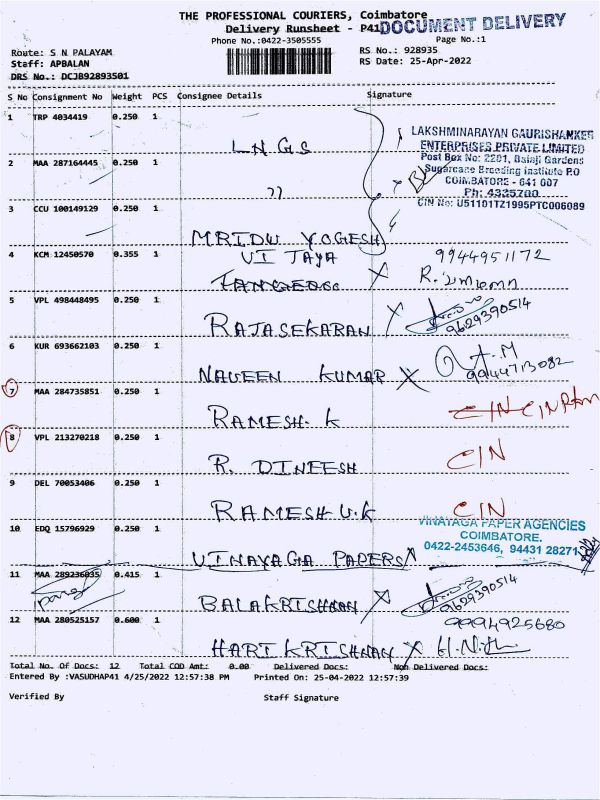 THE PROFESSIONAL COURIERS, Coimbatore
Delivery Runsheet - P41
DOCUMENT DELIVERY
Phone No.:0422-3505555
Page No.:1
Route: S N PALAYAM
RS No.: 928935
Staff: APBALAN
RS Date: 25-Apr-2022
DRS No.: DCJB92893501
S No Consignment No Weight PCS Consignee Details Signature
1 TRP 4034419 0.250 1 L N G S
LAKSHMINARAYAN GAURISHANKER
ENTERPRISES PRIVATE LIMITED
Post Box No: 2201, Balaji Gardens
Sugarcane Breeding Institute P.O
COIMBATORE - 641 007
Ph: 4335700
CIN No: U51101TZ1995PTC006089
2 MAA 287164445 0.250 1 "
3 CCU 100149129 0.250 1 MRIDU YOGESH
4 KCM 12450570 0.355 1 VIJAYA 9944951172
5 VPL 498448495 0.250 1 RAJASEKARAN X 9629390514
6 KUR 693662103 0.250 1 NAVEEN KUMAR X 9944713082
7 MAA 284735851 0.250 1 RAMESH. K CIN
8 VPL 213270218 0.250 1 R. DINEESH CIN
9 DEL 70053406 0.250 1 RAMESH U.K CIN
10 EDQ 15796929 0.250 1 VINAYAGA PAPERS
VINAYAGA PAPER AGENCIES
COIMBATORE.
0422-2453646, 94431 28271
11 MAA 289236035 0.415 1 BALAKRISHNAN X 9629390514
12 MAA 280525157 0.600 1 HARI KRISHNAN X 9994925680
Total No. Of Docs: 12 Total COD Amt: 0.00 Delivered Docs: Non Delivered Docs:
Entered By :VASUDHAP41 4/25/2022 12:57:38 PM Printed On: 25-04-2022 12:57:39
Verified By Staff Signature